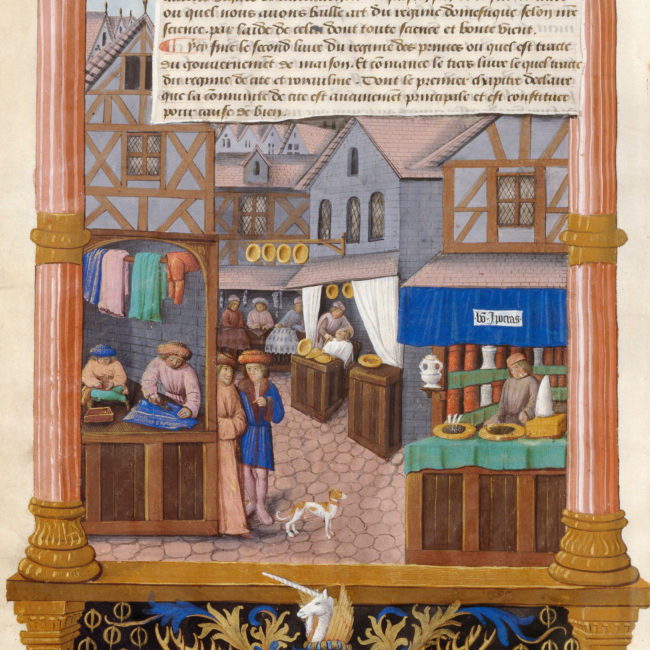 ou quel nous auons baille art du regime domestique selon nr̃e
science. par laide de celui dont toute science et bonte vient.
Ycy fine le second liure du regime des princes ou quel est tracte
du gouuernement de maison. Et cōmance le tiers liure le quel tracte
du regime de cite et royaulme. Dont le premier chapitre declaire
que la cōmunite de cite est aucunement principale et est constituee
pour cause de bien
bō Ipocras